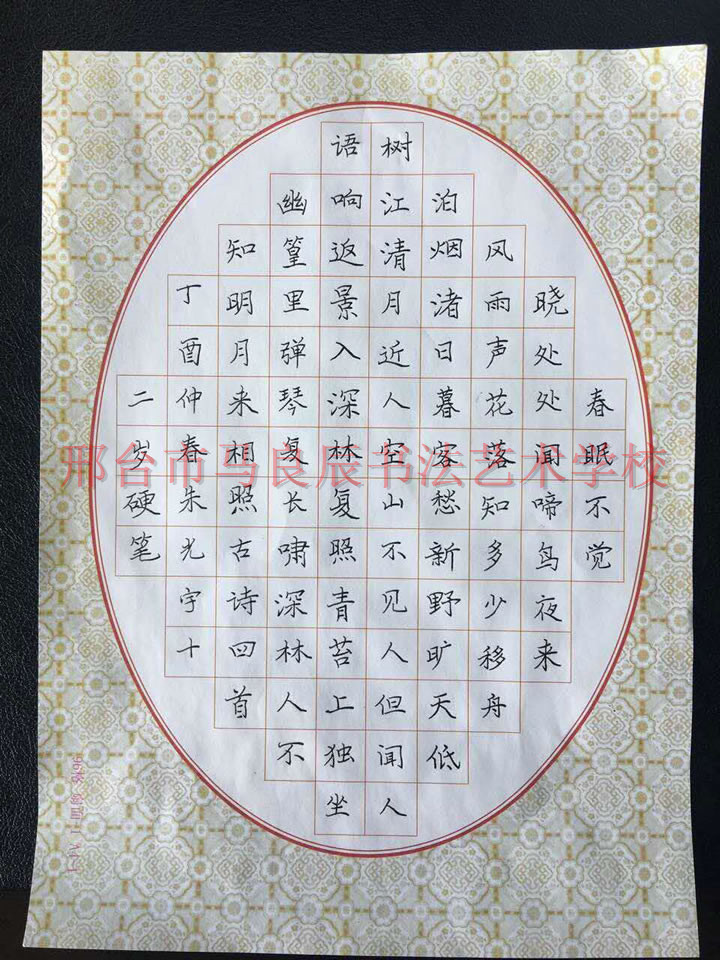 春眠不觉
晓处处闻啼鸟夜来
风雨声花落知多少移舟
泊烟渚日暮客愁新野旷天低
树江清月近人空山不见人但闻人
语响返景入深林复照青苔上独坐
幽篁里弹琴复长啸深林人不
知明月来相照古诗四首
丁酉仲春朱光宇十
二岁硬笔
邢台市马良辰书法艺术学校